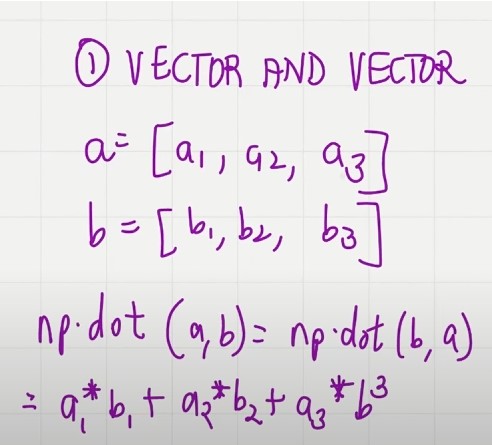 ① VECTOR AND VECTOR
a = [a₁, a₂, a₃]
b = [b₁, b₂, b₃]
np.dot (a,b) = np.dot (b, a)
= a₁*b₁ + a₂*b₂ + a₃*b³